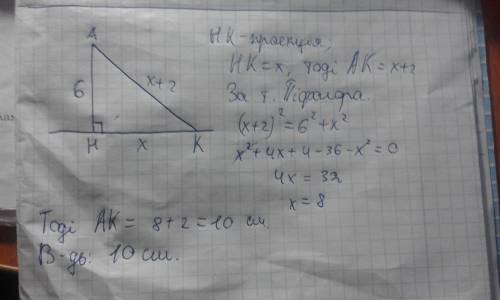 A
6
x+2
H
x
K
HK-проекция,
HK = x, тоді AK = x+2
За т. Піфагора.
(x+2)² = 6² + x²
x² + 4x + 4 - 36 - x² = 0
4x = 32
x = 8
Тоді AK = 8 + 2 = 10 см.
В-дь: 10 см.